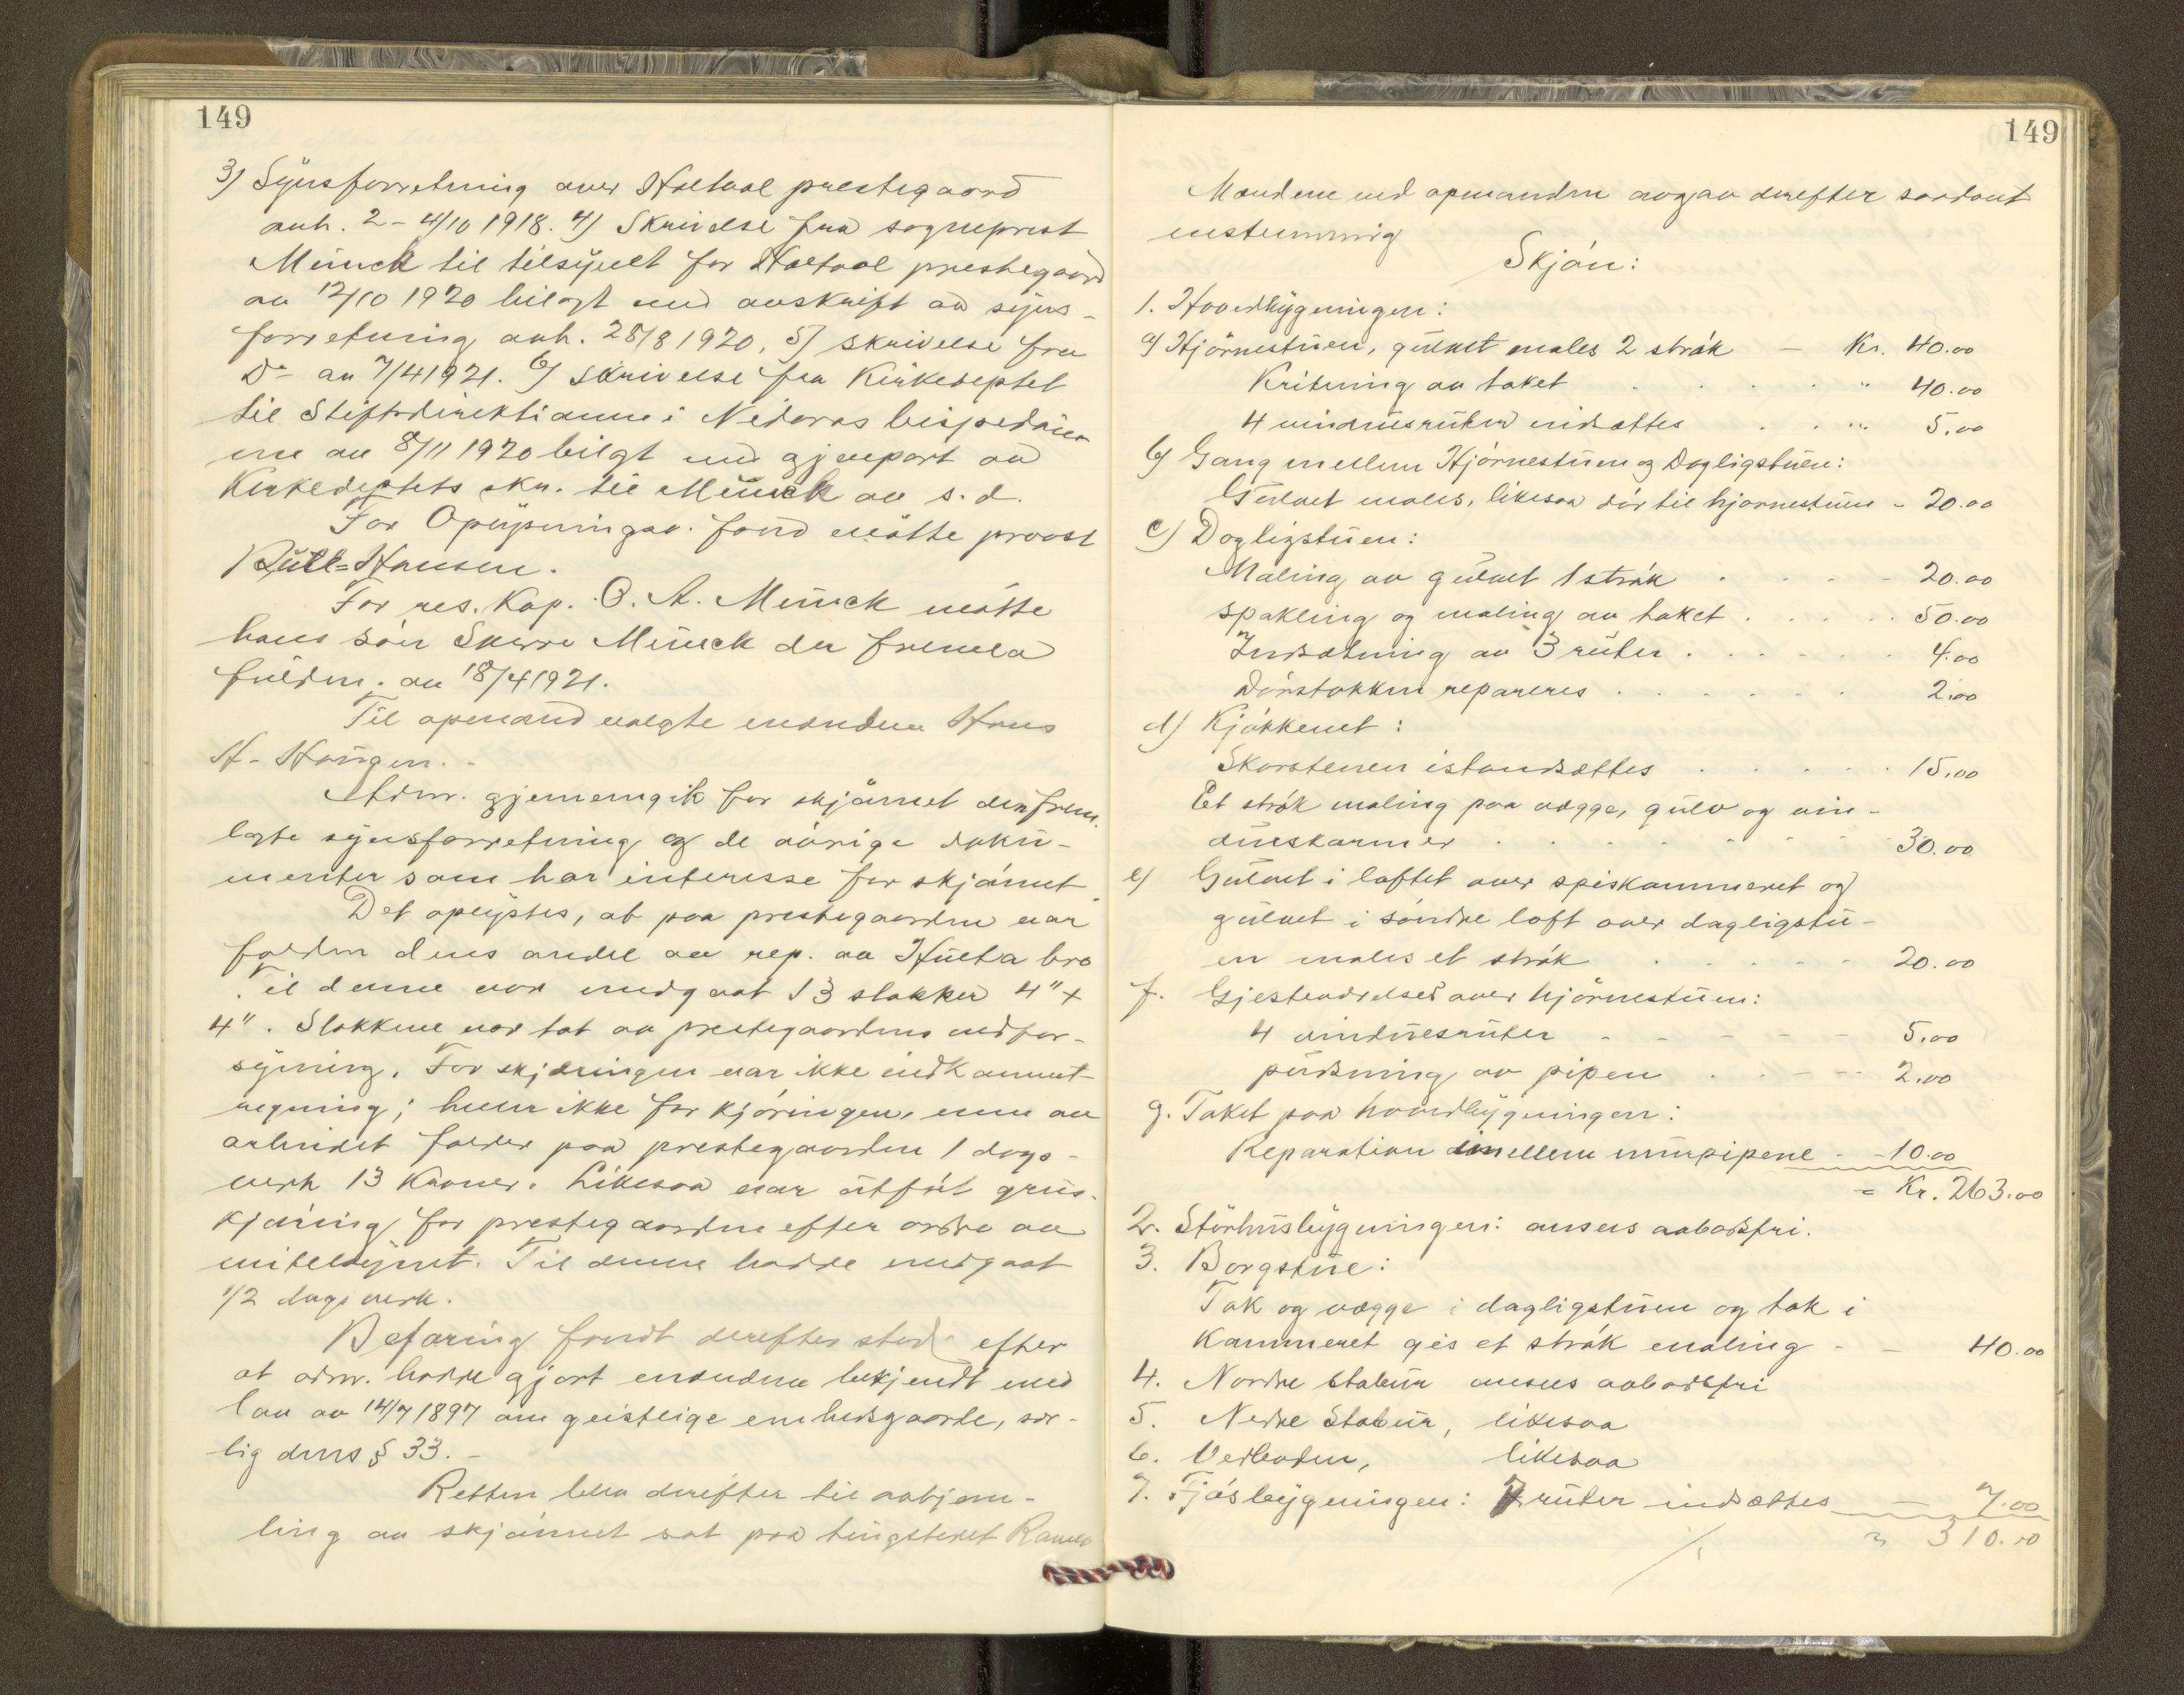 149
3) Synsforretning over Holtaal prestegaard
avh. 2-4/10 1918. 4) Skrivelse fra sogneprest
Münck til tilsynet for Holtaal prestegaard
av 12/10 1920 bilagt med avskrift av syns-
forretning avh. 28/8 1920, 5) skrivelse fra
Do av 7/4 1921. 6) Skrivelse fra Kirkedeptet
til Stiftsdirektionen i Nidaros bispedöm-
me av 8/11 1920 bilgt med gjenpart av
Kirkedeptets skr. til Münck av s.d.
For Oplysningsv. fond mötte provst
Bull-Hansen.
For res. Kap. O. A. Münck mötte
hans sön Sverre Münck der fremla
fuldm. av 18/4 1921.
Til opmand valgte mændene Hans
H. Haugen. -
Adm. gjennemgik for skjönnet den frem-
lagte synsforretning og de övrige doku-
menter som har interesse for skjönnet.
Det oplystes, at paa prestegaarden var
falden dens andel av rep. av Hulta bro
Til denne var medgaat 13 stokker 4" x
4". Stokkene var tat av prestegaardens vedfor-
syning. For skjæringen var ikke indkommet
regning; heller ikke for kjöringen, men av
arbeidet falder paa prestegaarden 1 dags-
verk 13 Kroner. Likesaa var utfört grus-
kjöring for prestegaarden efter ordre av
veitilsynet. Til denne hadde medgaat
1/2 dagsverk.
Befaring fandt derefter sted efter
at adm. hadde gjort mændene bekjendt med
lov av 14/7 1897 om geistlige embedsgaarde, sær-
lig dens § 33. -
Retten blev derefter til avhjem-
ling av skjönnet sat paa tingstedet Ramlo
149
Mændene med opmanden avgav derefter saadant
enstemmig
Skjön:
1. Hovedbygningen:
a) Hjörnestuen, gulvet males 2 strök - Kr. 40.00
Kritning av taket . . . . . " 40.00
4 vindusruter indsættes . . " 5.00
b) Gang mellem Hjörnestuen og Dagligstuen:
Gulvet males, likesaa dör til hjörnestuen - 20.00
c) Dagligstuen:
Maling av gulvet 1 strök . . . . 20.00
Spakling og maling av taket . . . . . 50.00
Indsætning av 3 ruter . . . . . . 4.00
Dörstokken repareres . . . . . . 2.00
d) Kjökkenet:
Skorstenen istandsættes . . . . . 15.00
Et strök maling paa vægge, gulv og vin-
dueskarmer . . . . . . . 30.00
e) Gulvet i loftet over spiskammeret og
gulvet i söndre loft over dagligstu-
en males et strök . . . . . 20.00
f. Gjesteværelset over hjörnestuen:
4 vinduesruter - - - - - 5.00
pudsning av pipen . . - - 2.00
g. Taket paa hovedbygningen:
Reparation imellem murpipene - - 10.00
= Kr. 263.00
2. Störhusbygningen: ansees aabotsfri.
3. Borgstue:
Tak og vægge i dagligstuen og tak i
kammeret gis et strök maling - - 40.00
4. Nordre Stabur ansees aabotsfri
5. Nedre Stabur, likesaa
6. Vedboden, likesaa
7. Fjösbygningen: 7 ruter indsættes - 7.00
310.00